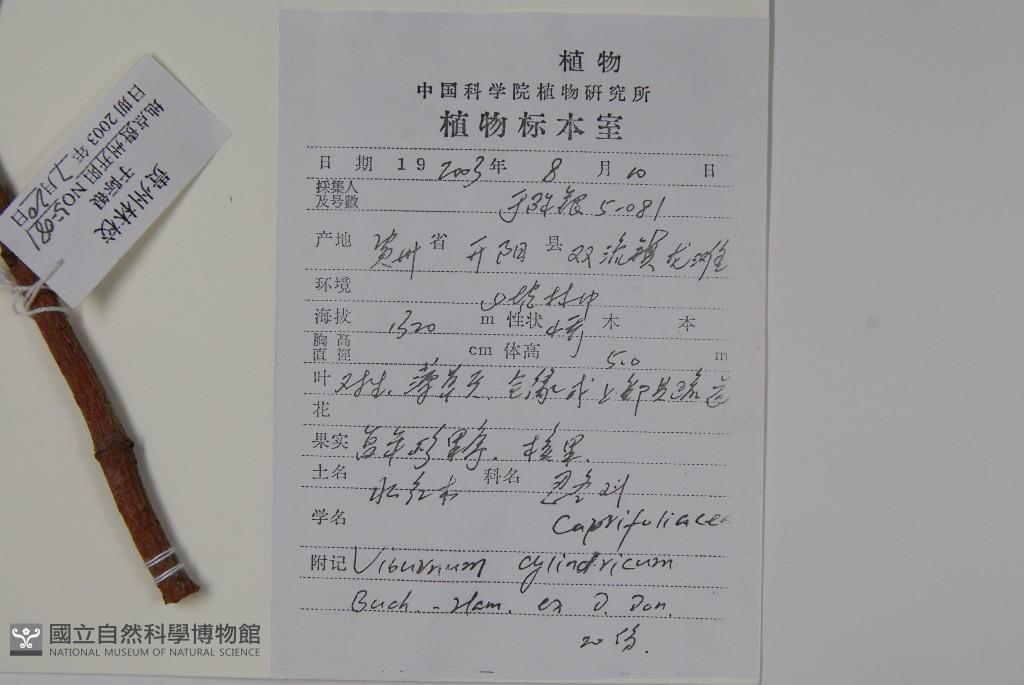 植物
中国科学院植物研究所
植物标本室
日 期 19 2003年 8 月 10 日
採集人
及号數 5-081
产地 贵州 省 开阳 县 双流镇 龙滩
环境
海拔 1320 m 性状 小乔 木 本
胸高
直徑 cm 体高 5.0 m
叶 对生、薄革质、全缘或上部具疏齿
花
果实 核果
土名 水红木 科名 忍冬科
学名 Caprifoliacea
附记 Viburnum cylindricum
Buch.-Ham. ex D. Don.
20份.
贵州林校
NO:5-081
地点贵州开阳
日期 2003 年 7 月 20 日
國立自然科學博物館
NATIONAL MUSEUM OF NATURAL SCIENCE